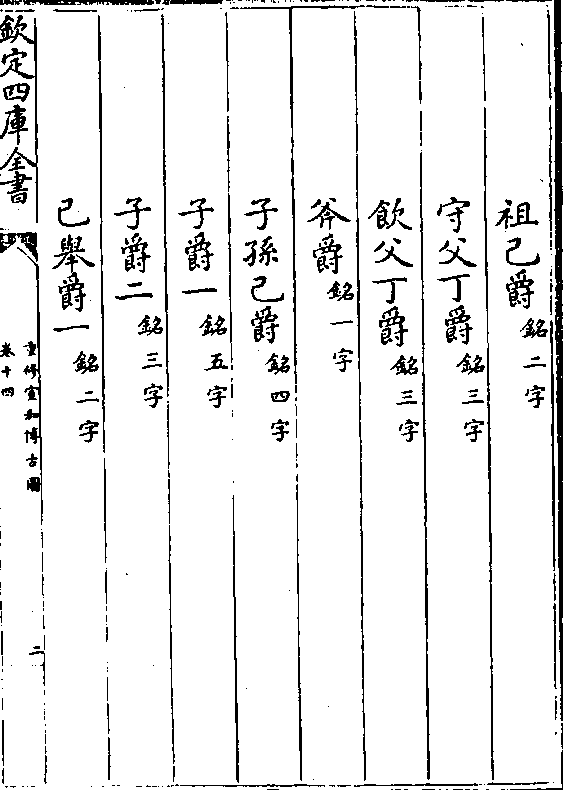 祖己爵銘二字
守父丁爵銘三字
飲父丁爵銘三字
斧爵銘一字
子孫己爵銘四字
子爵一銘五字
子爵二銘三字
己舉爵一銘二字
欽定四庫全書
重修宣和博古圖
卷十四
二